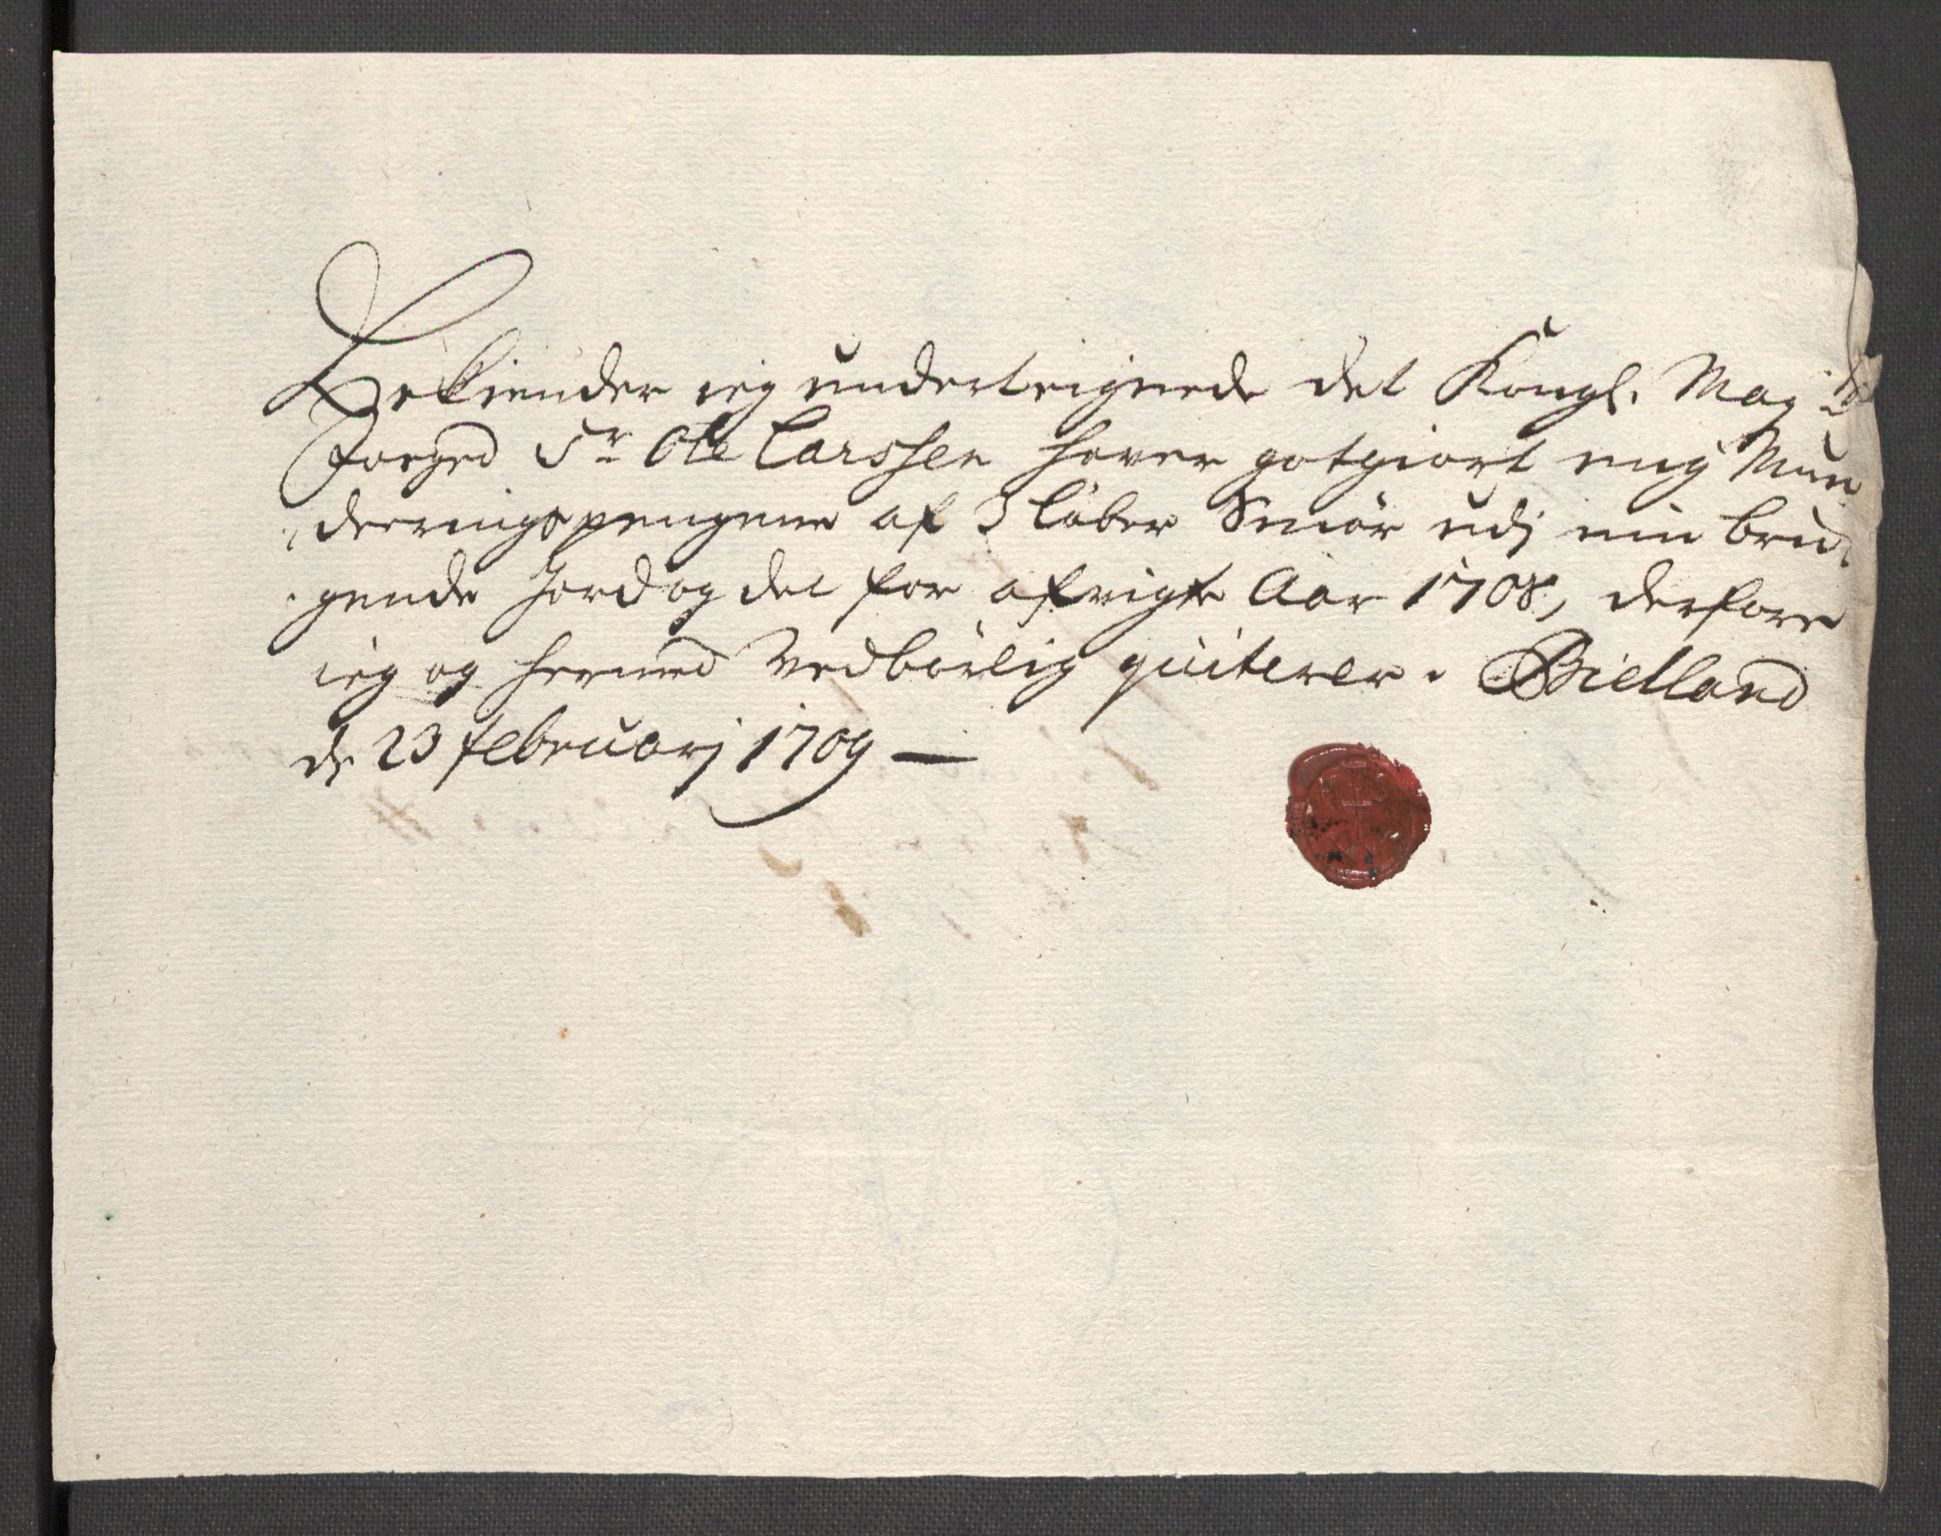 Bekiender ieg underteignede det Kongl. May:ts
Foeged Sr Ole Larssen haver gotgiort mig Mun
deeringspengene af 3 Løber Smör udj min bru
gende Jord og det for afvigte Aar 1708, derfore
ieg og hermed vedbörlig quiterer. Bielland
de 23 februarj 1709 —